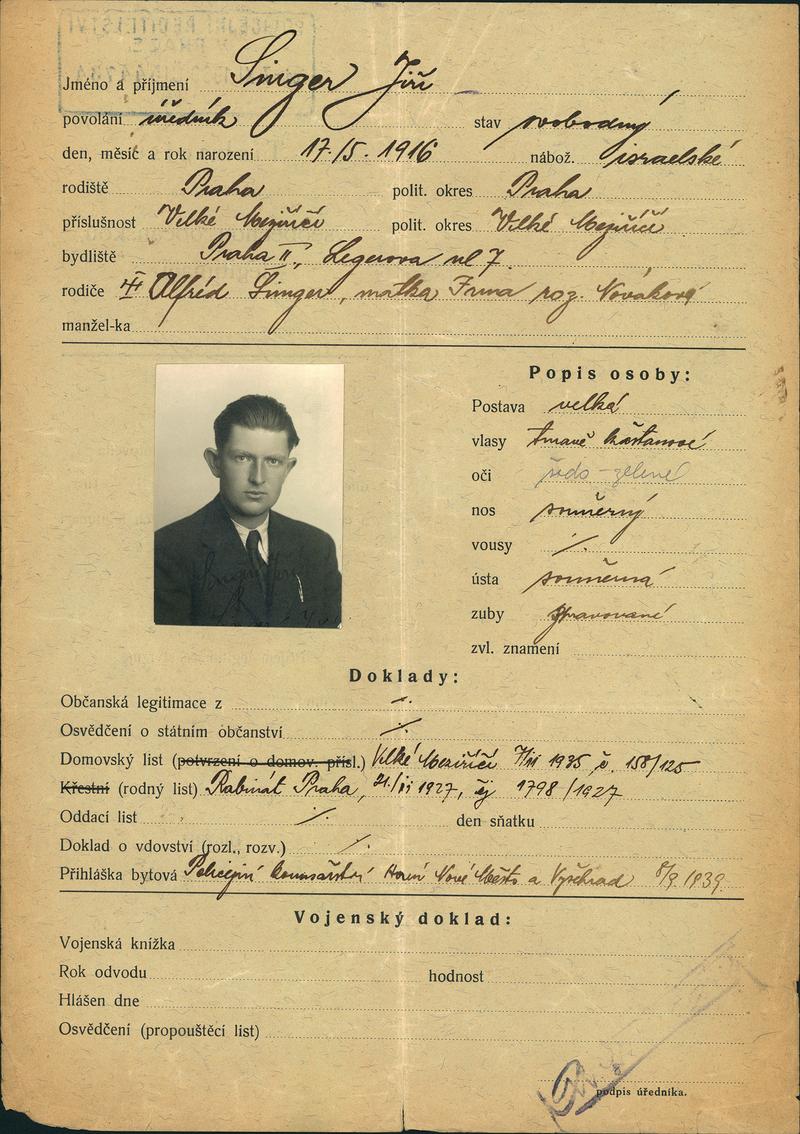 Jméno a příjmení Singer Jiří
povolání úředník stav svobodný
den, měsíc a rok narození 17./5. 1916 nábož. israelské
rodiště Praha polit. okres Praha
příslušnost Velké Meziříčí polit. okres Velké Meziříčí
bydliště Praha II, Legerova ul 7.
rodiče Alfréd Singer, matka Irma roz. Nováková
manžel-ka
Popis osoby:
Postava velká
vlasy tmavě kaštanové
oči šedo-zelené
nos souměrný
vousy /.
ústa souměrná
zuby spravované
zvl. znamení
Doklady:
Občanská legitimace z /.
Osvědčení o státním občanství /.
Domovský list (potvrzení o domov. přísl.) Velké Meziříčí 1935 č. 158/125
Křestní (rodný list) Rabinát Praha, 1927, čj 1798/1927
Oddací list /. den sňatku
Doklad o vdovství (rozl., rozv.) /.
Přihláška bytová Policejní komisařství Horní Nové Město a Vyšehrad 8/9. 1939.
Vojenský doklad:
Vojenská knížka
Rok odvodu hodnost
Hlášen dne
Osvědčení (propouštěcí list)
podpis úředníka.